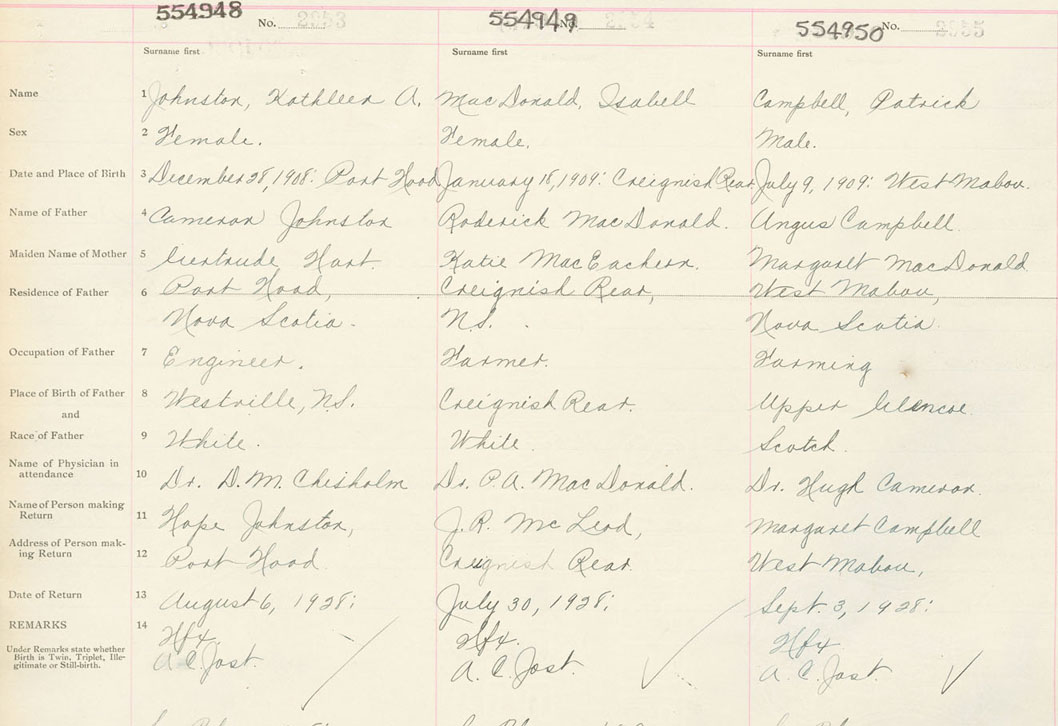 554948 No. 2953 554949 No. 2954 554950 No. 2955
Surname first Surname first Surname first
Name 1 Johnston, Kathleen A. MacDonald, Isabell Campbell, Patrick
Sex 2 Female. Female. Male.
Date and Place of Birth 3 December 28, 1908: Port Hood January 18, 1909: Creignish Rear July 9, 1909: West Mabou.
Name of Father 4 Cameron Johnston Roderick MacDonald. Angus Campbell.
Maiden Name of Mother 5 Gertrude Hart. Katie MacEachern. Margaret MacDonald
Residence of Father 6 Port Hood, Creignish Rear, West Mabou,
Nova Scotia. N.S. Nova Scotia.
Occupation of Father 7 Engineer. Farmer. Farming
Place of Birth of Father 8 Westville, N.S. Creignish Rear. Upper Glencoe.
and
Race of Father 9 White. White. Scotch.
Name of Physician in
attendance 10 Dr. D. M. Chisholm Dr. P. A. MacDonald. Dr. Hugh Cameron.
Name of Person making
Return 11 Hope Johnston, J. R. McLeod, Margaret Campbell
Address of Person mak-
ing Return 12 Port Hood. Craignish Rear. West Mabou,
Date of Return 13 August 6, 1928: July 30, 1928: Sept. 3, 1928:
REMARKS 14 Hfx. Hfx. Hfx.
Under Remarks state whether
Birth is Twin, Triplet, Ille-
gitimate or Still-birth.
A. C. Jost. A. C. Jost. A. C. Jost.